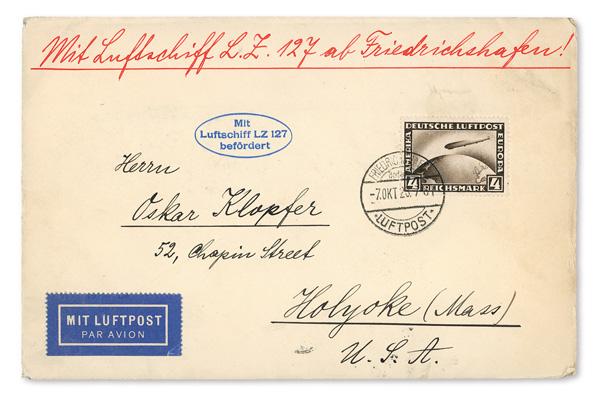 Mit Luftschiff L.Z. 127 ab Friedrichshafen!
Mit
Luftschiff LZ 127
befördert
DEUTSCHE LUFTPOST
AMERIKA
EUROPA
4
REICHSMARK
4
-7.OKT
LUFTPOST
Herrn
Oskar Klopfer
52, Chapin Street
Holyoke (Mass)
U.S.A.
MIT LUFTPOST
PAR AVION